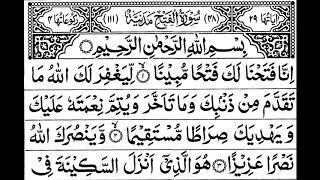 اٰیَاتُهَا ٢٩ (٤٨) سُوْرَةُ الْفَتْحِ مَدَنِیَّةٌ (١١١) رُكُوْعَاتُهَا ٤
بِسْمِ اللّٰهِ الرَّحْمٰنِ الرَّحِیْمِ
اِنَّا فَتَحْنَا لَكَ فَتْحًا مُّبِیْنًا لِّیَغْفِرَ لَكَ اللّٰهُ مَا
تَقَدَّمَ مِنْ ذَنْۢبِكَ وَمَا تَاَخَّرَ وَیُتِمَّ نِعْمَتَهٗ عَلَیْكَ
وَیَهْدِیَكَ صِرَاطًا مُّسْتَقِیْمًا وَّیَنْصُرَكَ اللّٰهُ
نَصْرًا عَزِیْزًا هُوَ الَّذِیْۤ اَنْزَلَ السَّكِیْنَةَ فِیْ